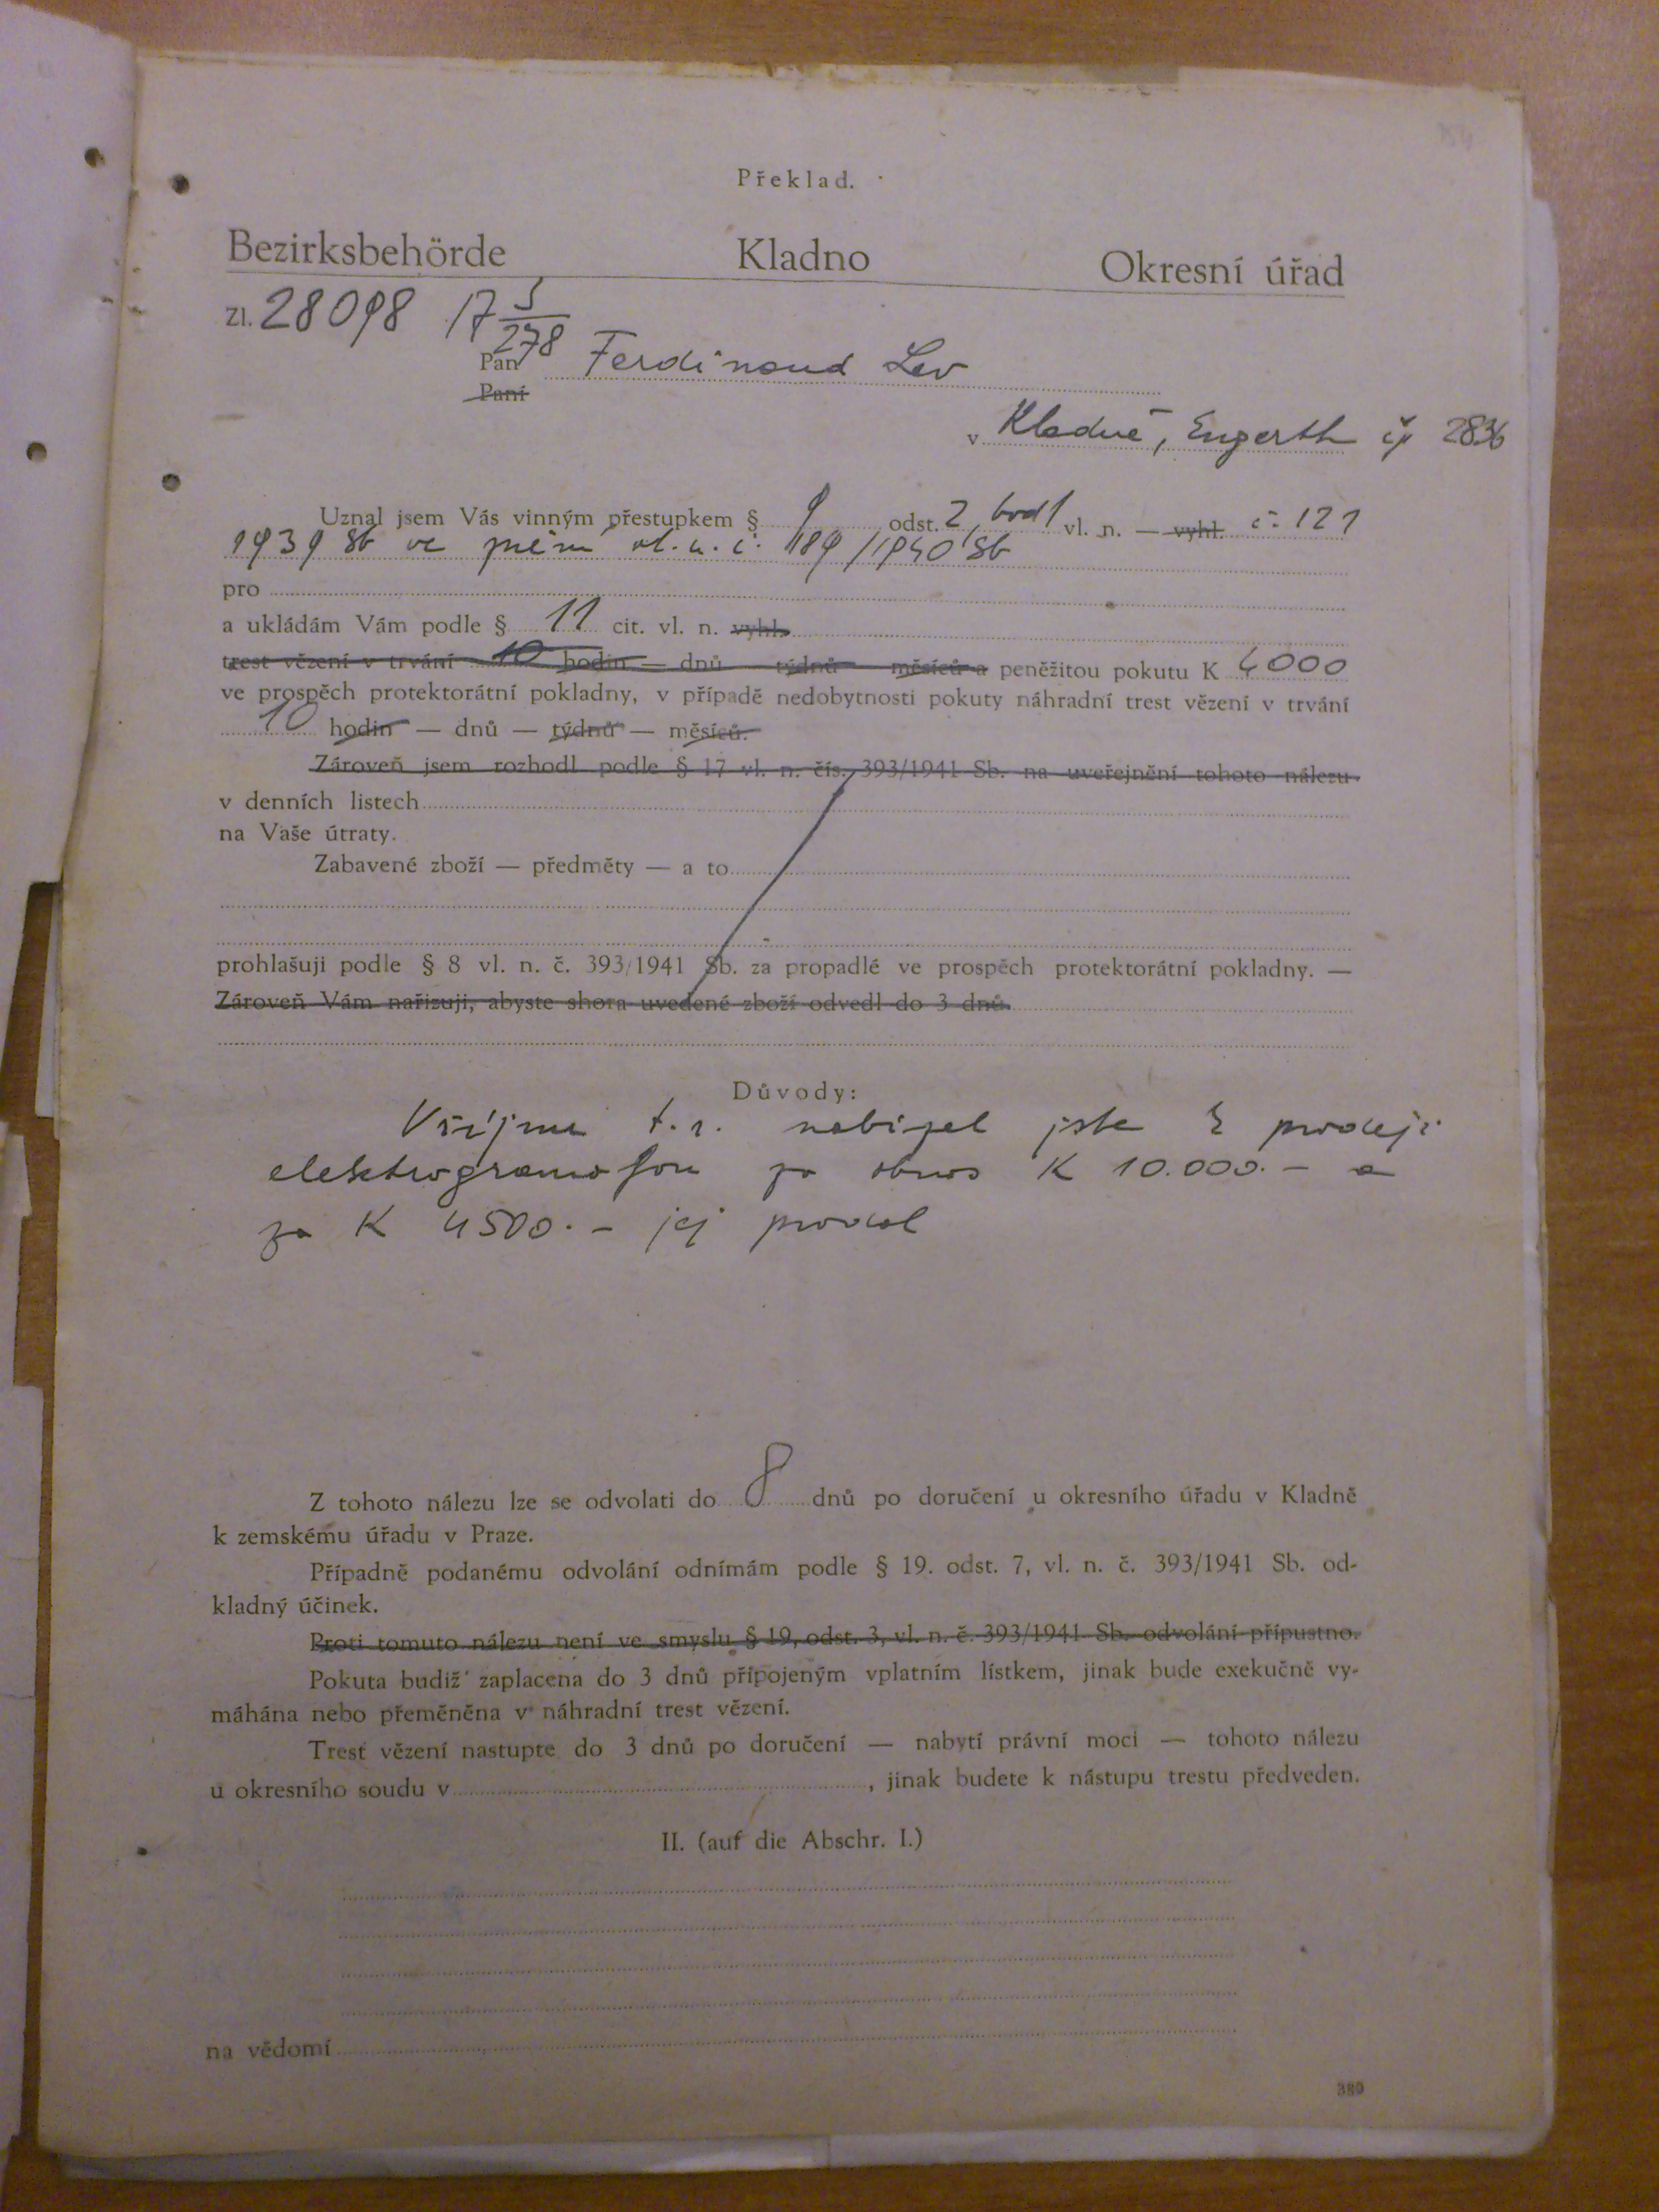 Překlad.
Bezirksbehörde Kladno Okresní úřad
Zl. 28098 17 5/278
Pan Ferdinand Lev
Paní
v Kladně, Engerth čp 2836
Uznal jsem Vás vinným přestupkem § 9 odst. 2, bod 1 vl. n. — vyhl. č. 121
1939 Sb ve znění vl. n. č. 189/1940 Sb
pro
a ukládám Vám podle § 11 cit. vl. n. vyhl.
trest vězení v trvání 10 hodin — dnů týdnů měsíců a peněžitou pokutu K 4000
ve prospěch protektorátní pokladny, v případě nedobytnosti pokuty náhradní trest vězení v trvání
10 hodin — dnů — týdnů — měsíců.
Zároveň jsem rozhodl podle § 17 vl. n. čís. 393/1941 Sb. na uveřejnění tohoto nálezu
v denních listech
na Vaše útraty.
Zabavené zboží — předměty — a to
prohlašuji podle § 8 vl. n. č. 393/1941 Sb. za propadlé ve prospěch protektorátní pokladny. —
Zároveň Vám nařizuji, abyste shora uvedené zboží odvedl do 3 dnů
Důvody:
V říjnu t. r. nabízel jste k prodeji
elektrogramofon za obnos K 10.000.— a
za K 4500.— jej prodal
Z tohoto nálezu lze se odvolati do 8 dnů po doručení u okresního úřadu v Kladně
k zemskému úřadu v Praze.
Případně podanému odvolání odnímám podle § 19. odst. 7, vl. n. č. 393/1941 Sb. od-
kladný účinek.
Proti tomuto nálezu není ve smyslu § 19, odst. 3, vl. n. č. 393/1941 Sb. odvolání přípustno.
Pokuta budiž zaplacena do 3 dnů připojeným vplatním lístkem, jinak bude exekučně vy-
máhána nebo přeměněna v náhradní trest vězení.
Trest vězení nastupte do 3 dnů po doručení — nabytí právní moci — tohoto nálezu
u okresního soudu v , jinak budete k nástupu trestu předveden.
II. (auf die Abschr. I.)
na vědomí
380